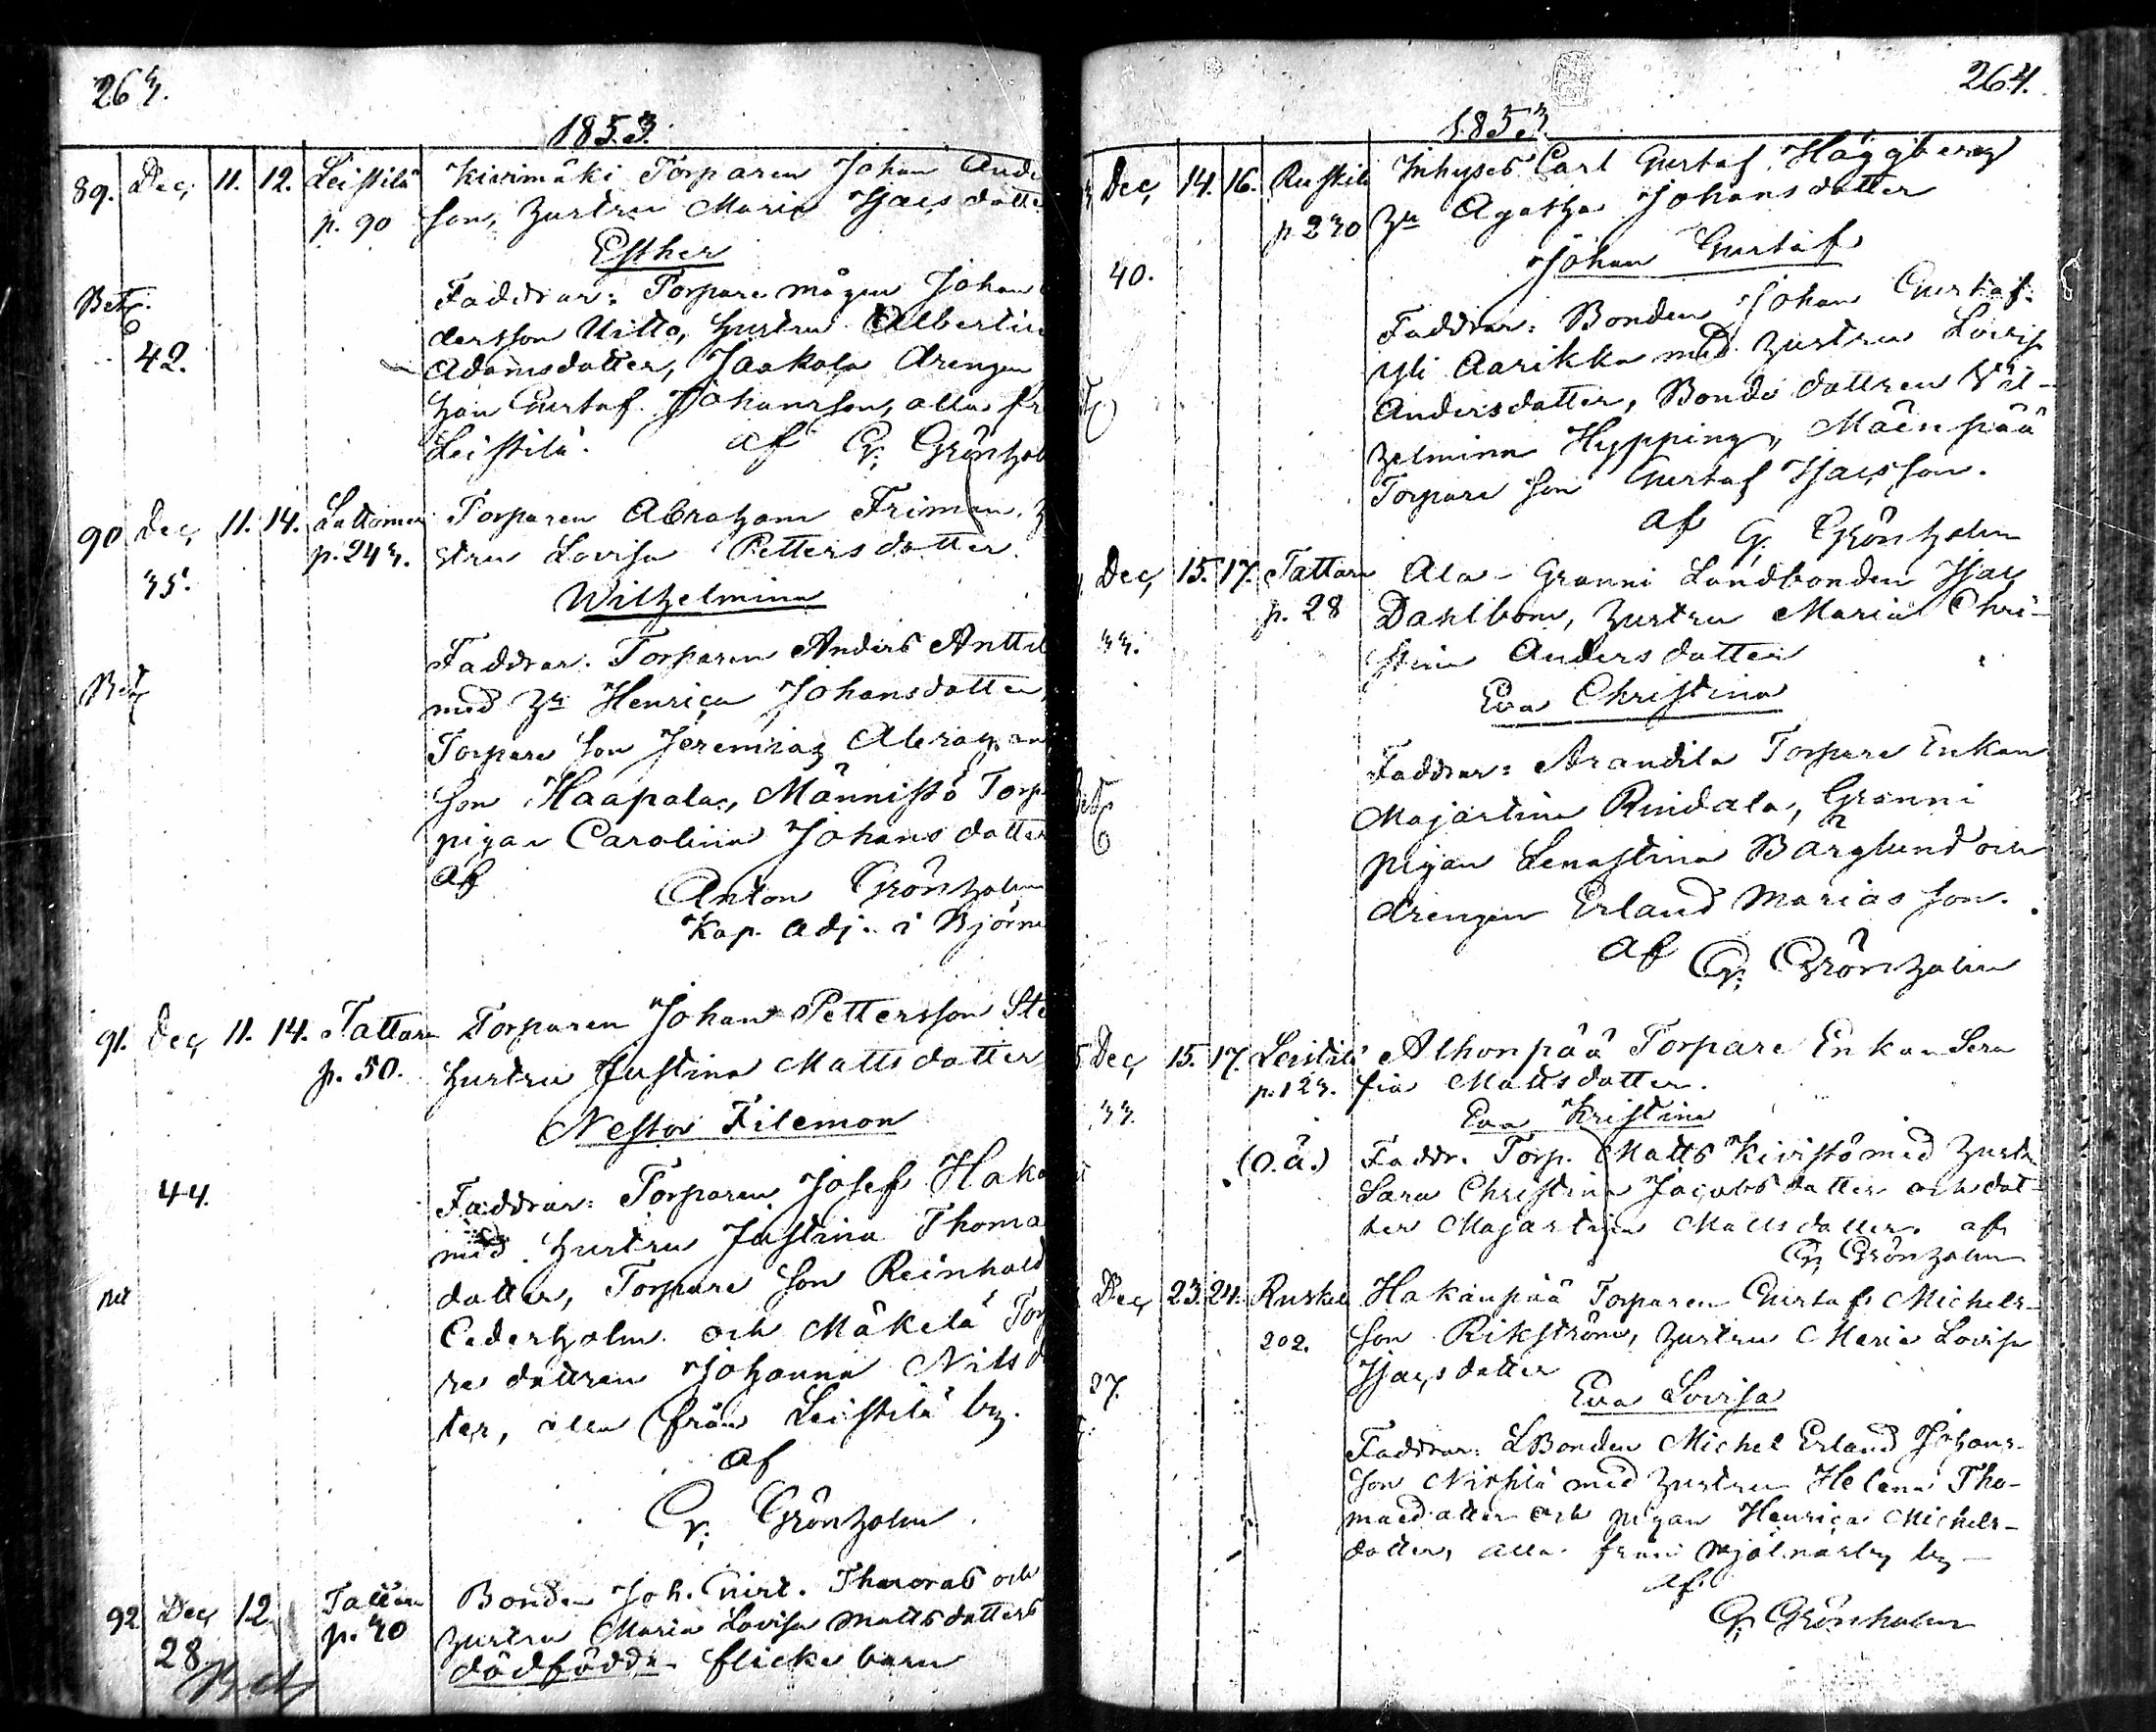 263.
1853.
89. Dec, 11. 12. Leistilä Kivimäki Torparen Johan Ande
p. 90 son, hustru Maria Isacsdotte
Esther
Bet. Faddrar: Torpare mågen Johan
dersson Uitto, hustru Albertin
42. Adamsdotter, Jaakola drengen
han Gustaf Johansson, alla fr
Leistilä. af G. Grönhol
90 Dec, 11. 14. Torparen Abraham Friman, h
p. 243. stru Lovisa Pettersdotter.
35.
Wilhelmina
Faddrar: Torparen Anders Anttil
Bet med hu Henrica Johansdotter,
Torpare son Jeremias Abraham
son Haapala, Männistö Torp
pigan Carolina Johansdotter
af Anton Grönholm
Kap. Adj. i Björne
91. Dec, 11. 14. Tattara Torparen Johan Pettersson Ste
p. 50. hustru Justina Mattsdotter
Nestor Filemon
44. Faddrar: Torparen Josef Hako
med hustru Justina Thoma
dotter, Torpare son Reinhold
Cederholm och Mäkelä Torp
re dottren Johanna Nilsd
ter, alla från Leistilä by.
af
G. Grönholm
92 Dec, 12. Tattara Bonden Joh. Gust. och
28. p. 40 hustru Maria Lovisa Mattsdotters
Bet dödfödda flicke barn
264.
1853
Dec, 14. 16. Inhyses Carl Gustaf Häggberg
p 230 hu Agatha Johansdotter
40. Johan Gustaf
Faddrar: Bonden Johan Gustaf
Yli Aarikka med hustru Lovisa
Andersdotter, Bonde dottren Vil-
helmina Hypping, Mäenpää
Torpare son Gustaf Isacsson.
af G. Grönholm
Dec, 15. 17. Tattara Ala-Granni Landbonden Isac
p. 28 Dahlbom, hustru Maria Chri-
33. stina Andersdotter
Eva Christina
Faddrar: Torpare Enkan
Majastina Rindala, Granni
pigan Lenastina Bärglund och
drengen Erland Mariasson.
af G. Grönholm
Dec, 15. 17. Leistilä Alhonpää Torpare Enkan Sera
p. 123. fia Mattsdotter.
33. Eva Kristina
(o.ä.) Faddr. Torp. Matts Kivistö med hustr
Sara Christina Jacobsdotter och dot-
ter Majastina Mattsdotter. af
G. Grönholm
Dec, 23. 24. Ruskila Hakanpää Torparen Gustaf Michels-
202. son Rikström, hustru Maria Lovisa
27. Isacsdotter
Eva Lovisa
Faddrar: LBonden Michel Erland Johans-
son med hustru Helena Tho-
masdotter och pigan Henrica Michels-
dotter, alla från by-
af
G. Grönholm